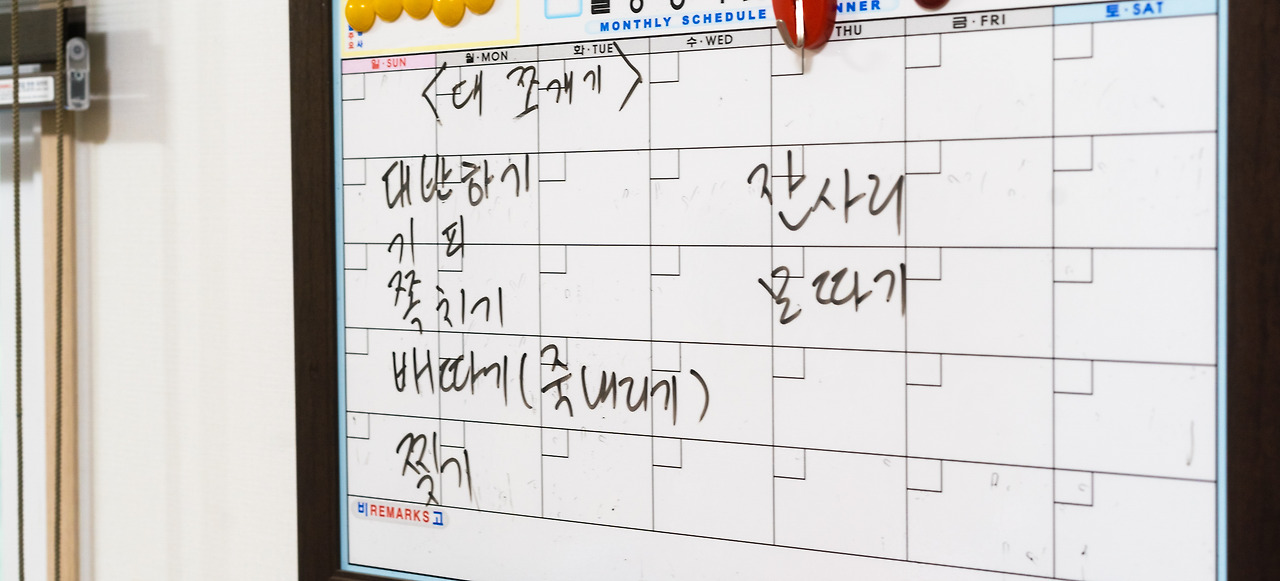 MONTHLY SCHEDULE
일·SUN 월·MON 화·TUE 수·WED THU 금·FRI 토·SAT
<대 쪼개기>
대반하기 잔사리
기피
쪽치기 올따기
배따기(죽내리기)
찢기
비REMARKS고